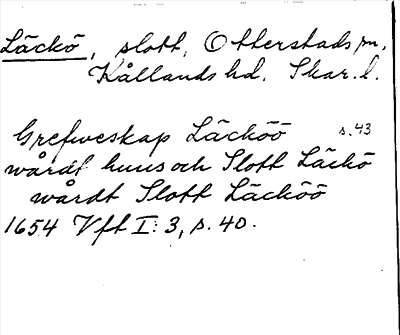 Läckö, slott, Otterstads sn,
Kållands hd. Skar. l.
Grefweskap Läcköö s. 43
wårdt huus och Slott Läckö
wårdt Slott Läcköö
1654 Vft I: 3, s. 40.